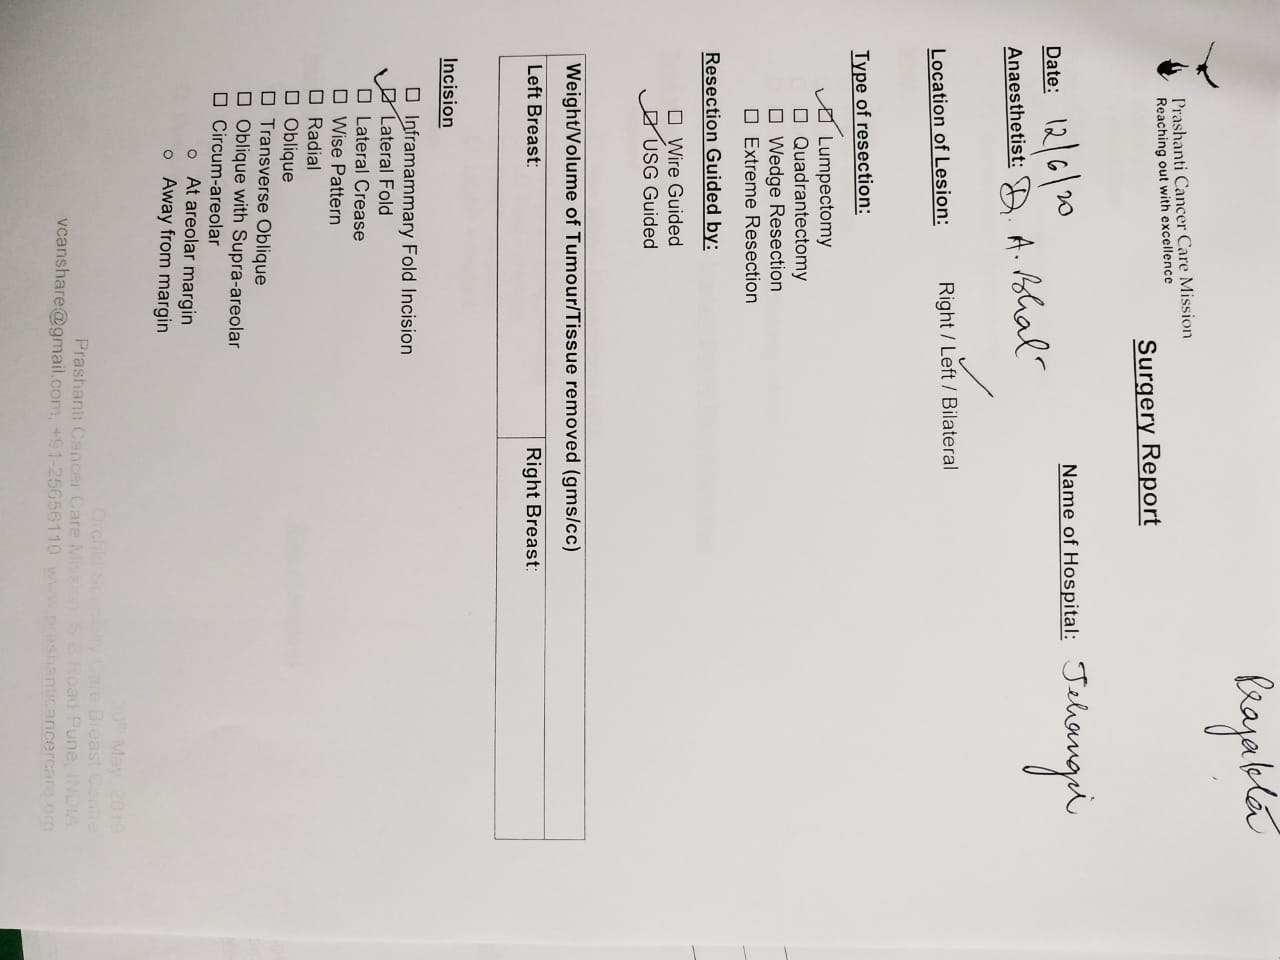 Prashanti Cancer Care Mission
Reaching out with excellence
Surgery Report
Date: 12/6/20 Name of Hospital: Jehangir
Anaesthetist: Dr. A.
Location of Lesion: Right / Left / Bilateral
Type of resection:
☑ Lumpectomy
☐ Quadrantectomy
☐ Wedge Resection
☐ Extreme Resection
Resection Guided by:
☐ Wire Guided
☑ USG Guided
Weight/Volume of Tumour/Tissue removed (gms/cc)
Left Breast: Right Breast:
Incision
☐ Inframammary Fold Incision
☑ Lateral Fold
☐ Lateral Crease
☐ Wise Pattern
☐ Radial
☐ Oblique
☐ Transverse Oblique
☐ Oblique with Supra-areolar
☐ Circum-areolar
○ At areolar margin
○ Away from margin
10th May 2019
Orchid Specialty Care Breast Centre
Prashanti Cancer Care Mission, S B Road Pune, INDIA
vcanshare@gmail.com, +91-25656110 www.prashanticancercare.org